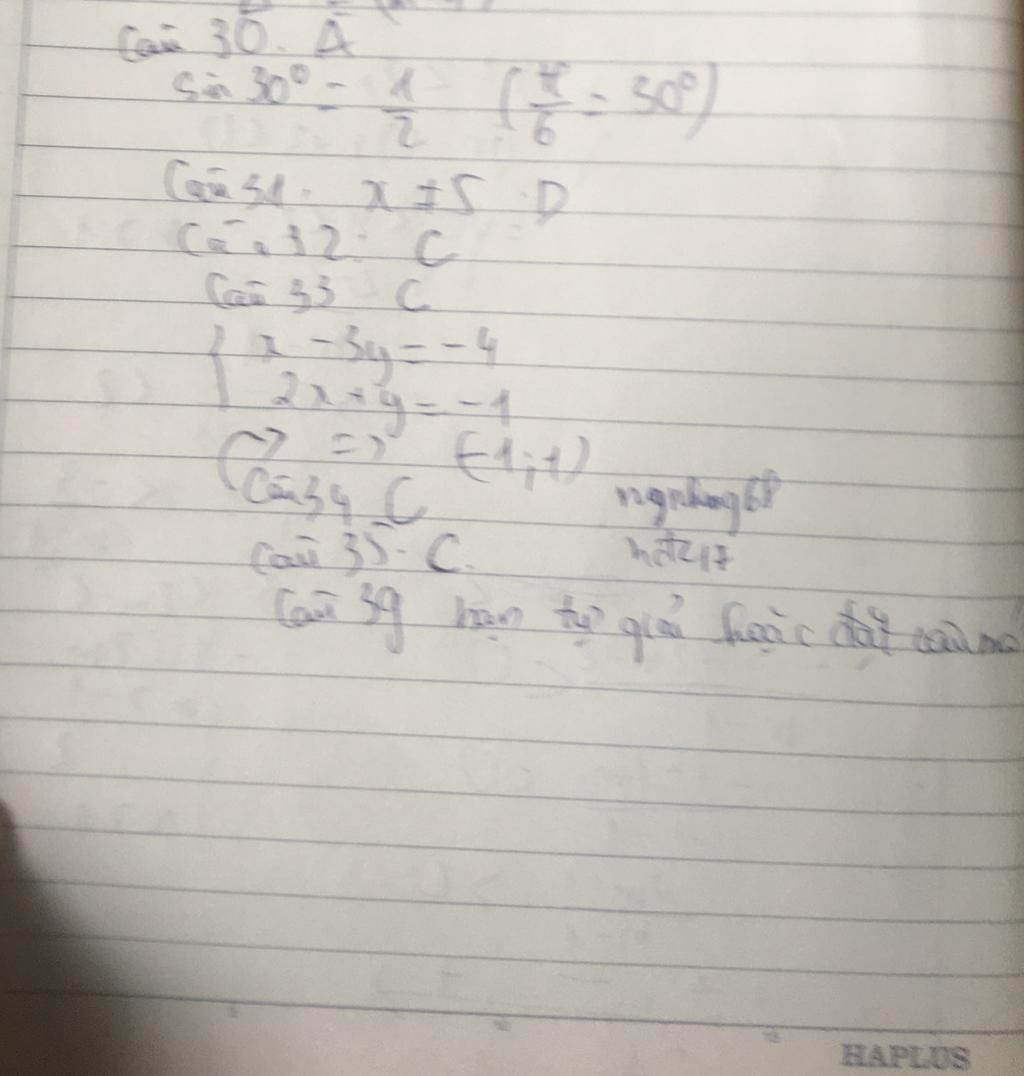 Câu 30. A
sin 30° = 1/2 (π/6 = 30°)
Câu 31. x ≠ 5 . D
Câu 32: C
Câu 33 C
{ x - 3y = -4
2x + y = -1
=> (-1; 1)
Câu 34 C
Câu 35. C.
Câu 39 bạn tự giải hoặc đặt câu
HAPLUS